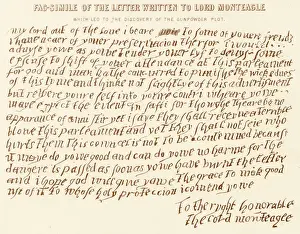 FAC-SIMILE OF THE LETTER WRITTEN TO LORD MONTEAGLE
WHICH LED TO THE DISCOVERY OF THE GUNPOWDER PLOT.
my lord out of the love i beare to some of youere frends
i have a caer of youer preseruacion therfor i would
advyse yowe as yowe tender youer lyf to devyse some
excuse to shift of youer attendance at this parleament
for god and man hathe concurred to punishe the wickednes
of this tyme and thinke not slightlye of this advertisment
but retyere youre self into youre contri wheare yowe
maye expect the event in safti for thowghe theare be no
apparance of anni stir yet i saye they shall receyve a terrible
blowe this parleament and yet they shall not seie who
hurts them this cowncel is not to be contemned because
it maye do yowe good and can do yowe no harme for the
dangere is passed as soon as yowe have burnt the letter
and i hope god will give yowe the grace to mak good
use of it to whose holy proteccion i comend yowe
To the right honorable
the lord monteagle